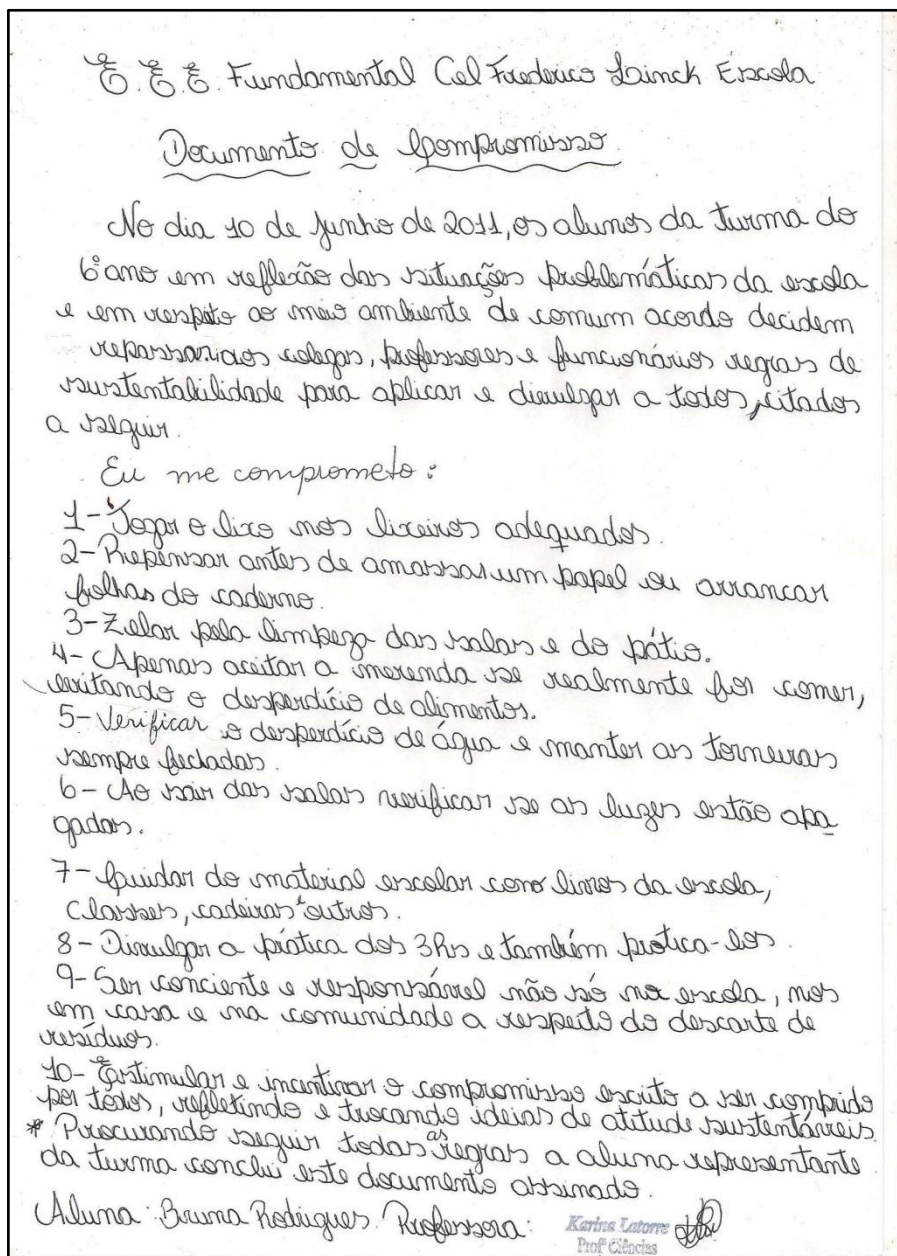 E. E. E. Fundamental Cel Frederico Linck Escola
Documento de Compromisso
No dia 10 de junho de 2011, os alunos da turma do
6º ano em reflexão das situações problemáticas da escola
e em respeito ao meio ambiente de comum acordo decidem
repassar aos colegas, professores e funcionários regras de
sustentabilidade para aplicar e divulgar a todos, citados
a seguir.
Eu me comprometo:
1- Jogar o lixo nos lixeiros adequados.
2- Repensar antes de amassar um papel ou arrancar
folhas do caderno.
3- Zelar pela limpeza das salas e do pátio.
4- Apenas aceitar a merenda se realmente for comer,
evitando o desperdício de alimentos.
5- Verificar o desperdício de água e manter as torneiras
sempre fechadas.
6- Ao sair das salas verificar se as luzes estão apa
gadas.
7- Cuidar do material escolar como livros da escola,
classes, cadeiras e outros.
8- Divulgar a prática dos 3Rs e também pratica-los.
9- Ser conciente e responsável não só na escola, mas
em casa e na comunidade a respeito do descarte de
resíduos.
10- Estimular e incentivar o compromisso escrito a ser comprido
por todos, refletindo e trocando ideias de atitude sustentáveis.
* Procurando seguir todas as regras a aluna representante
da turma conclui este documento assinado.
Aluna: Bruna Rodrigues. Professora: Karina Latorre
Profª Ciências